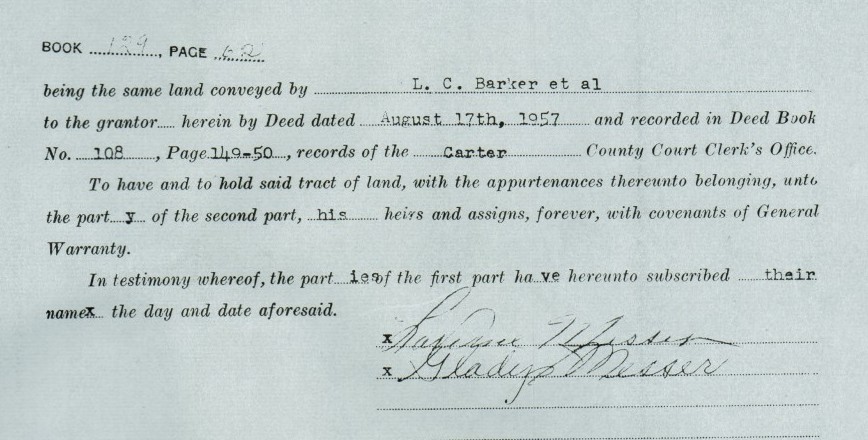 BOOK 129, PAGE 62
being the same land conveyed by L. C. Barker et al
to the grantor herein by Deed dated August 17th, 1957 and recorded in Deed Book
No. 108, Page 149-50, records of the Carter County Court Clerk's Office.
To have and to hold said tract of land, with the appurtenances thereunto belonging, unto
the part y of the second part, his heirs and assigns, forever, with covenants of General
Warranty.
In testimony whereof, the part ies of the first part ha ve hereunto subscribed their
namex the day and date aforesaid.
x Messer
x Gladys Messer